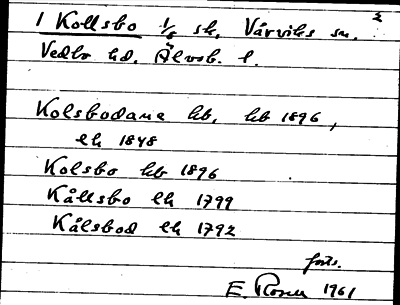 2
1 Kollsbo 1/8 sk. Vårviks sn.
Vedbo hd. Älvsb. l.
Kolsbodane kb, hb 1896,
lh 1848
Kolsbo hb 1896
Kållsbo lh 1799
Kålsbod lh 1792
forts.
E. Rosen 1961